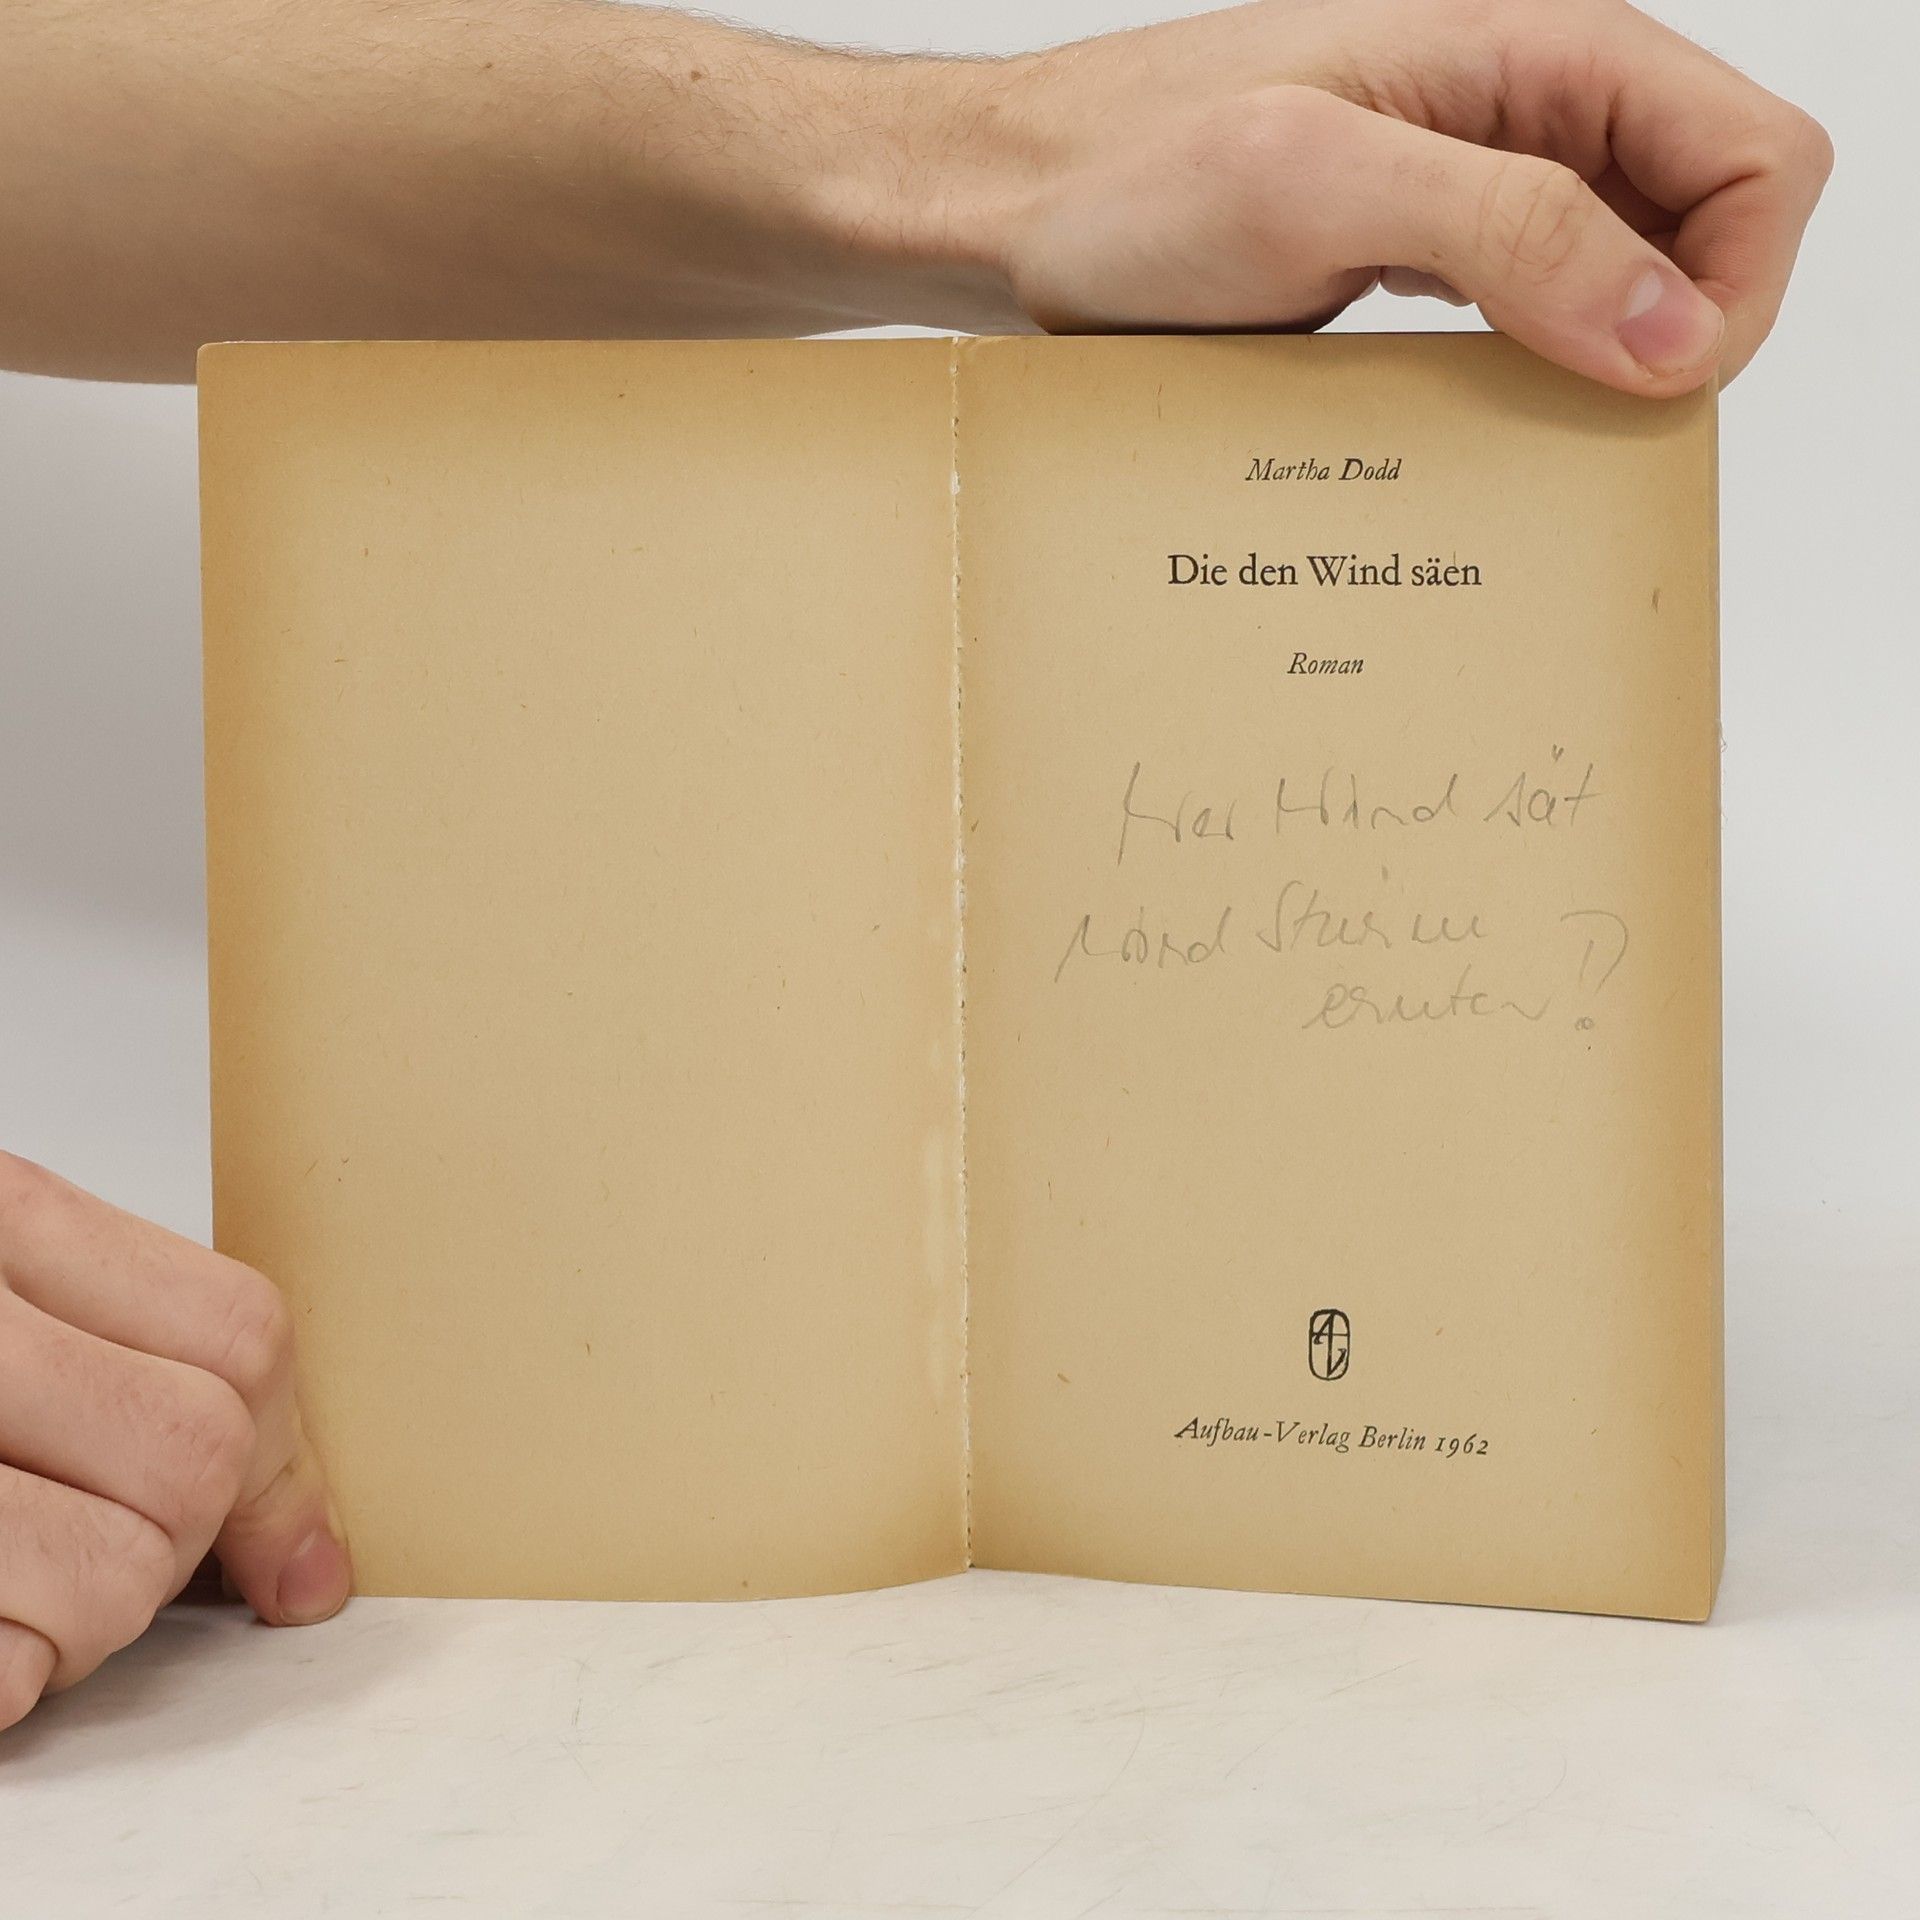 Martha Dodd
Die den Wind säen
Roman
Wer Wind sät
wird Sturm
ernten!
AV
Aufbau-Verlag Berlin 1962